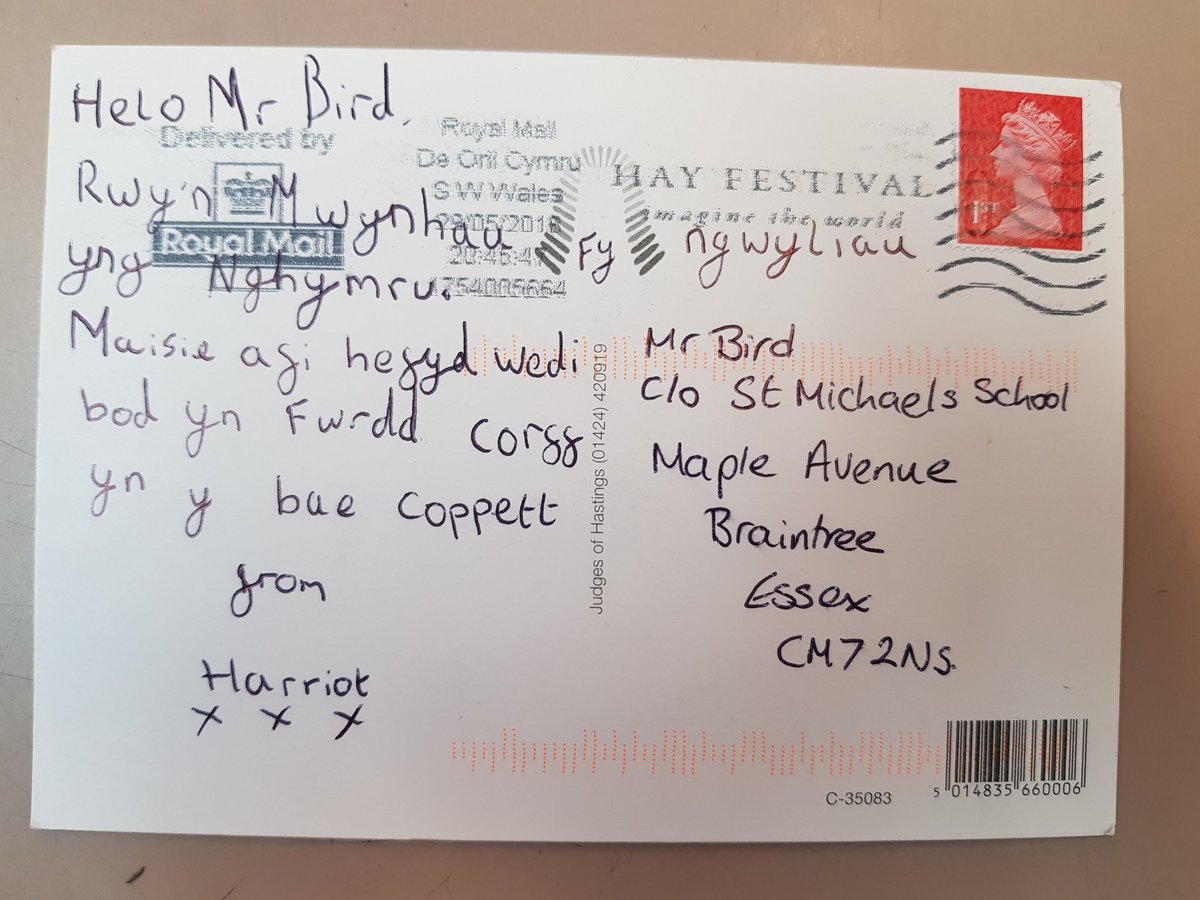 Helo Mr Bird.
Rwy'n Mwynhau Fy ngwyliau
yng Nghymru.
Maisie agi hegyd wedi
bod yn Fwrdd corgg
yn y bae coppett
from
Harriot
x x x
Delivered by
Royal Mail
Royal Mail
De Orll Cymru
S W Wales
28/05/2018
20:45:4
1754005664
HAY FESTIVAL
imagine the world
1ST
Mr Bird
C/o St Michaels School
Maple Avenue
Braintree
Essex
CM7 2NS.
Judges of Hastings (01424) 420919
C-35083
5 014835 660006